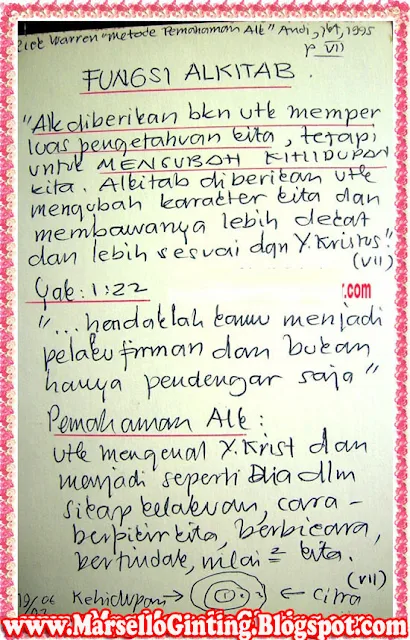 Rick Warren "Metode Pemahaman Alk" Andi, Jkt, 1995
p VII
FUNGSI ALKITAB.
"Alk diberikan bkn utk memper
luas pengetahuan kita, tetapi
untuk MENGUBAH KEHIDUPAN
kita. Alkitab diberikan utk
mengubah karakter kita dan
membawanya lebih dekat
dan lebih sesuai dgn Y. Kristus."
(VII)
Yak: 1:22
.com
"... hendaklah kamu menjadi
pelaku firman dan bukan
hanya pendengar saja"
Pemahaman Alk:
utk mengenal Y. Krist dan
menjadi seperti Dia dlm
sikap kelakuan, cara-
berpikir kita, berbicara,
bertindak, nilai² kita.
(VII)
Kehidupan → ← citra
www.MarselloGinting.Blogspot.com